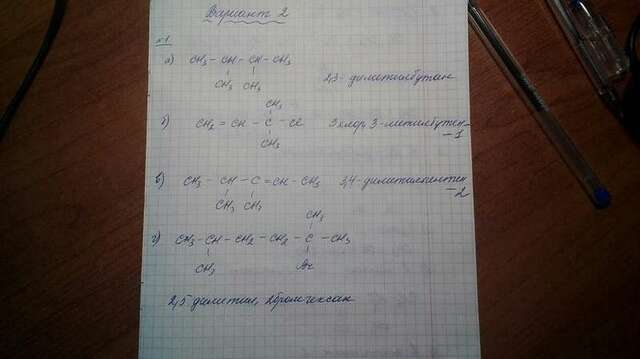 Вариант 2
№1
а) CH₃ - CH - CH - CH₃
CH₃ CH₃
2,3 - диметилбутан
CH₃
б) CH₂ = CH - C - Cl
CH₃
3 хлор, 3 - метилбутен-
- 1
в) CH₃ - CH - C = CH - CH₃
CH₃ CH₃
3,4 - диметилпентен
- 2
CH₃
г) CH₃ - CH - CH₂ - CH₂ - C - CH₃
CH₃ Br
2,5 диметил, 2бромгексан